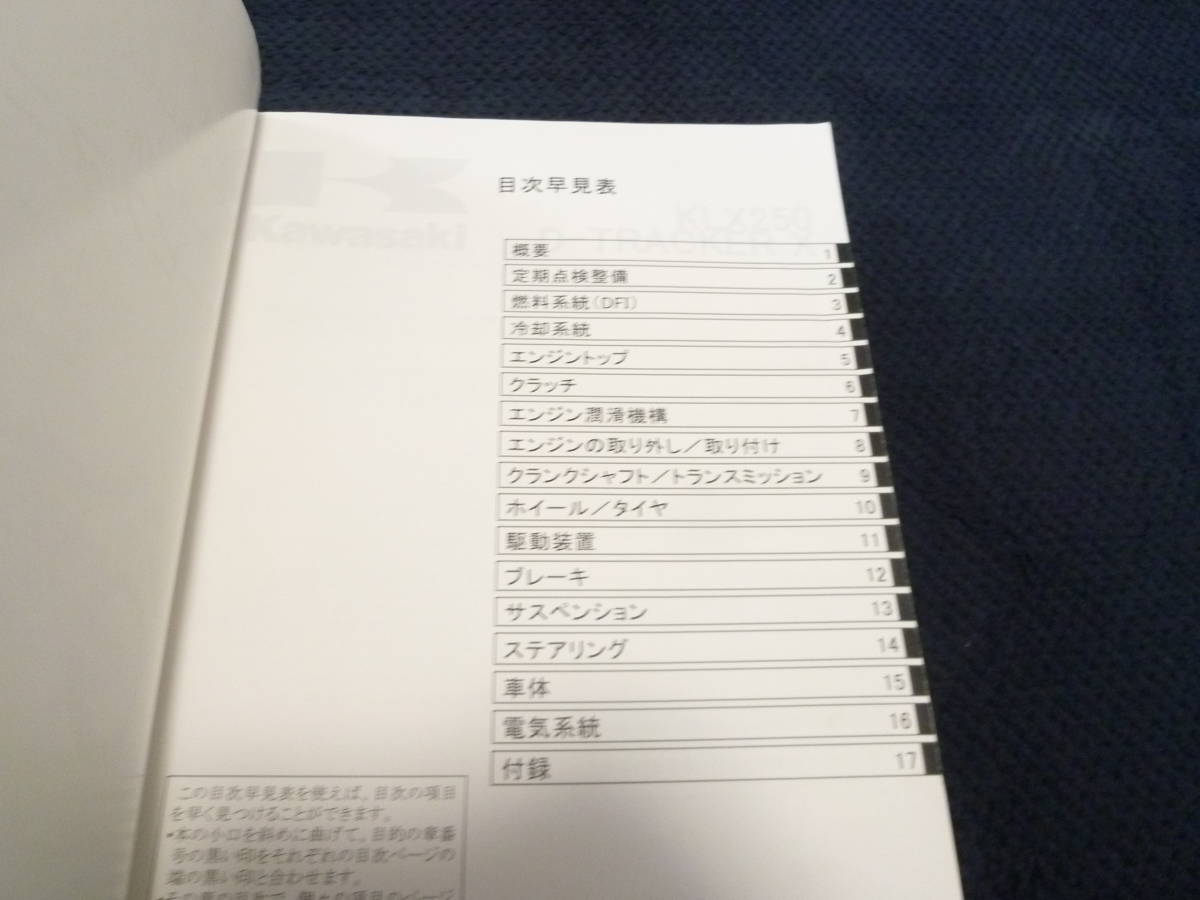 目次早見表
Kawasaki
KLX250
D-TRACKER X
概要 1
定期点検整備 2
燃料系統(DFI) 3
冷却系統 4
エンジントップ 5
クラッチ 6
エンジン潤滑機構 7
エンジンの取り外し/取り付け 8
クランクシャフト/トランスミッション 9
ホイール/タイヤ 10
駆動装置 11
ブレーキ 12
サスペンション 13
ステアリング 14
車体 15
電気系統 16
付録 17
この目次早見表を使えば、目次の項目
を早く見つけることができます。
•本の小口を斜めに曲げて、目的の章番
号の黒い印をそれぞれの目次ページの
端の黒い印と合わせます。